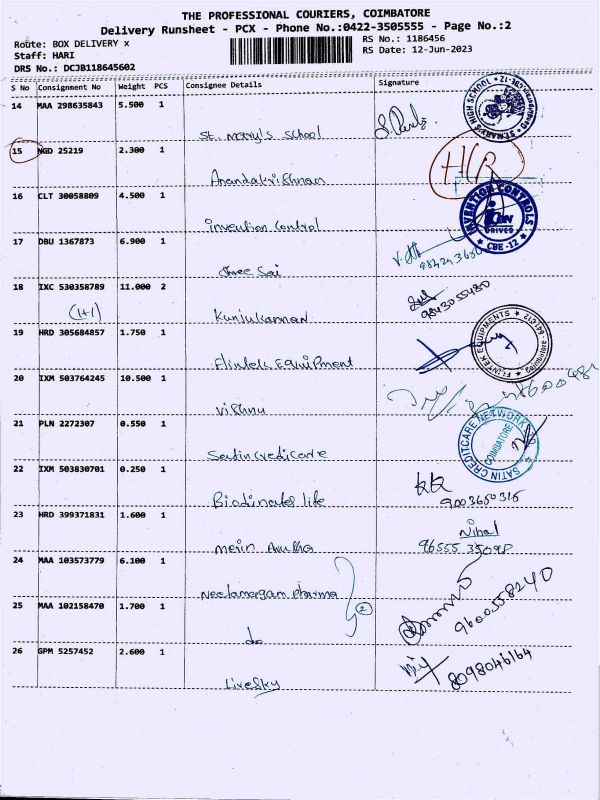 THE PROFESSIONAL COURIERS, COIMBATORE
Delivery Runsheet - PCX - Phone No.:0422-3505555 - Page No.:2
Route: BOX DELIVERY x
RS No.: 1186456
Staff: HARI
RS Date: 12-Jun-2023
DRS No.: DCJB118645602
S No Consignment No Weight PCS Consignee Details Signature
14 MAA 298635843 5.500 1
St. Mary's School
15 NGD 25219 2.300 1
Anandakrishnan
16 CLT 30058809 4.500 1
Invention Control
INVENTION CONTROLS
DRIVES
CBE - 12
17 DBU 1367873 6.900 1
Shree Sai
18 IXC 530358789 11.000 2
(1+1)
Kunjukannan
9843055480
19 HRD 305684857 1.750 1
Flintek Equipment
20 IXM 503764245 10.500 1
Vishnu
21 PLN 2272307 0.550 1
Satincredicare
SATIN CREDITCARE NETWORK
COIMBATORE
22 IXM 503830701 0.250 1
life
9003650316
23 HRD 399371831 1.600 1
Nihal
24 MAA 103573779 6.100 1
Neelamegam Pharma
(2)
25 MAA 102158470 1.700 1
do
9600558240
26 GPM 5257452 2.600 1
LiveSky
8098046164